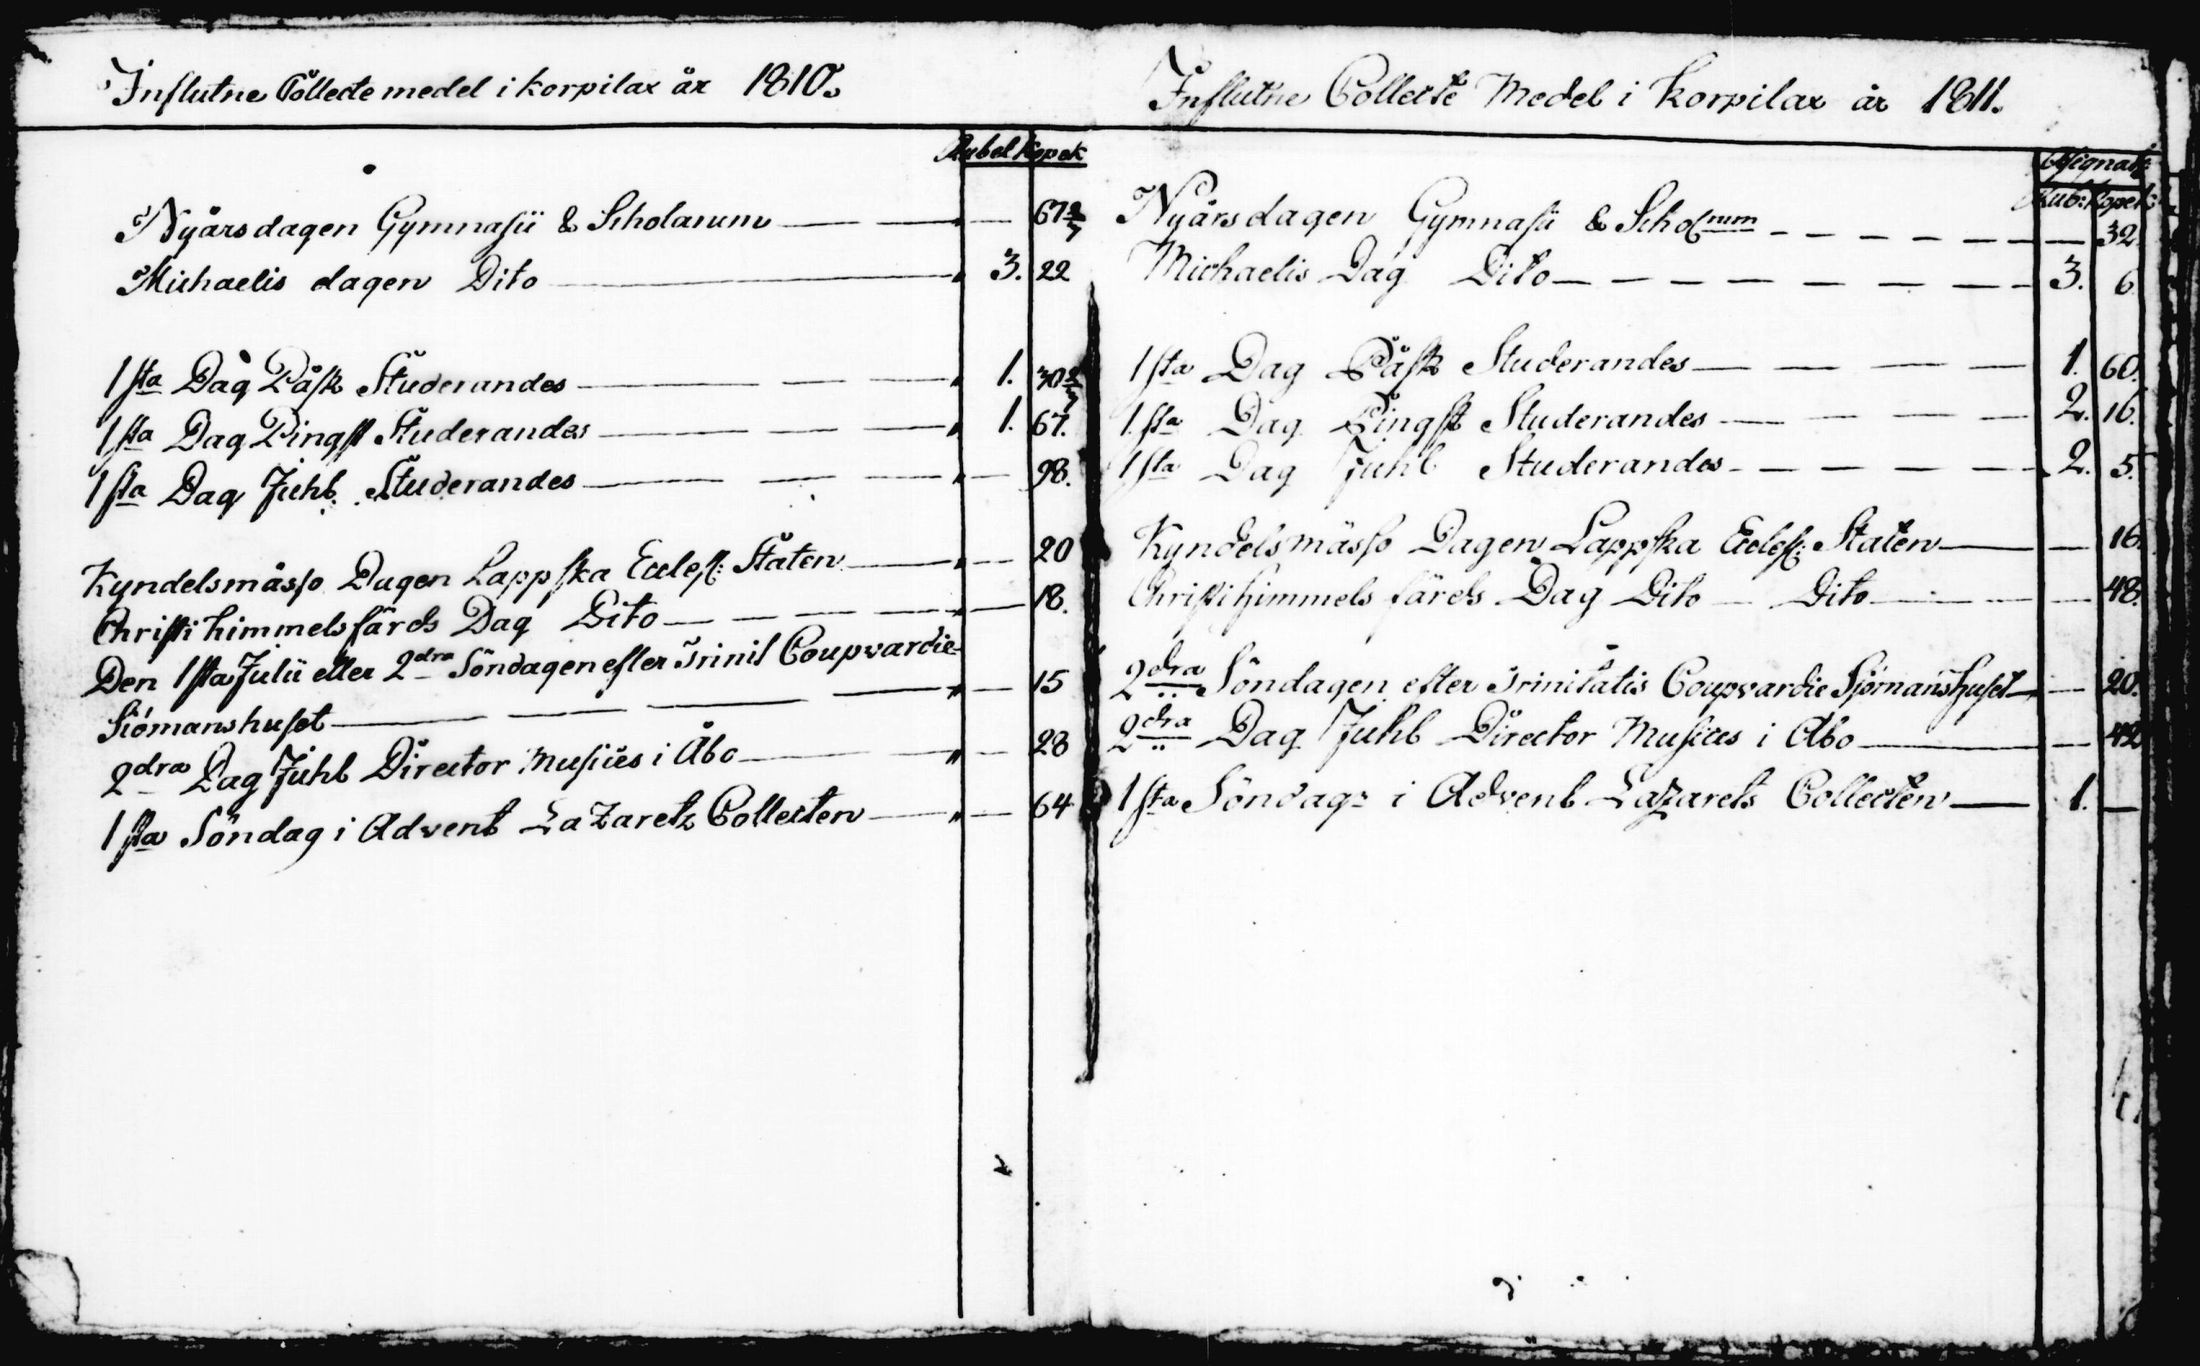 Influtne Collecte medel i Korpilax år 1810.
Rubel Kopek
Nyårsdagen Gymnasii & Scholarum — — " — 67 2/7
Michaelis dagen Dito — " 3. 22
1sta Dag Påsk Studerandes — — — — " 1. 30 2/7
1sta Dag Pingst Studerandes — — — — " 1. 67.
1sta Dag Juhl Studerandes — — — — " — 98.
Kyndelsmässo Dagen Lappska Eccles: Staten — " — 20
Christi himmelsfärds Dag Dito — — — — " — 18.
Den 1sta Julii eller 2dra Söndagen efter Trinit Coupvardie-
Siömanshuset — — — — " — 15
2dra Dag Juhl Director Musices i Åbo — — " — 28
1sta Söndag i Advent Lazaretz Collecten — " — 64
Influtne Collecte Medel i Korpilax år 1811.
Rub: Kopek:
Nyårsdagen Gymnasii & Scholrum — — — — — 32.
Michaelis Dag Dito — — — — — — — 3. 6.
1sta Dag Påsk Studerandes — — — — 1. 60.
1sta Dag Pingst Studerandes — — — — 2. 16.
1sta Dag Juhl Studerandes — — — — 2. 5.
Kyndelsmässo Dagen Lappska Eccles: Staten — — 16.
Christi himmels färds Dag Dito — Dito — — — 48.
2dra Söndagen efter Trinitatis Coupvardie Sjömanshuset — — 20.
2dra Dag Juhl Director Musices i Åbo — — 42
1sta Söndag i Advent Lazarets Collecten — 1. —